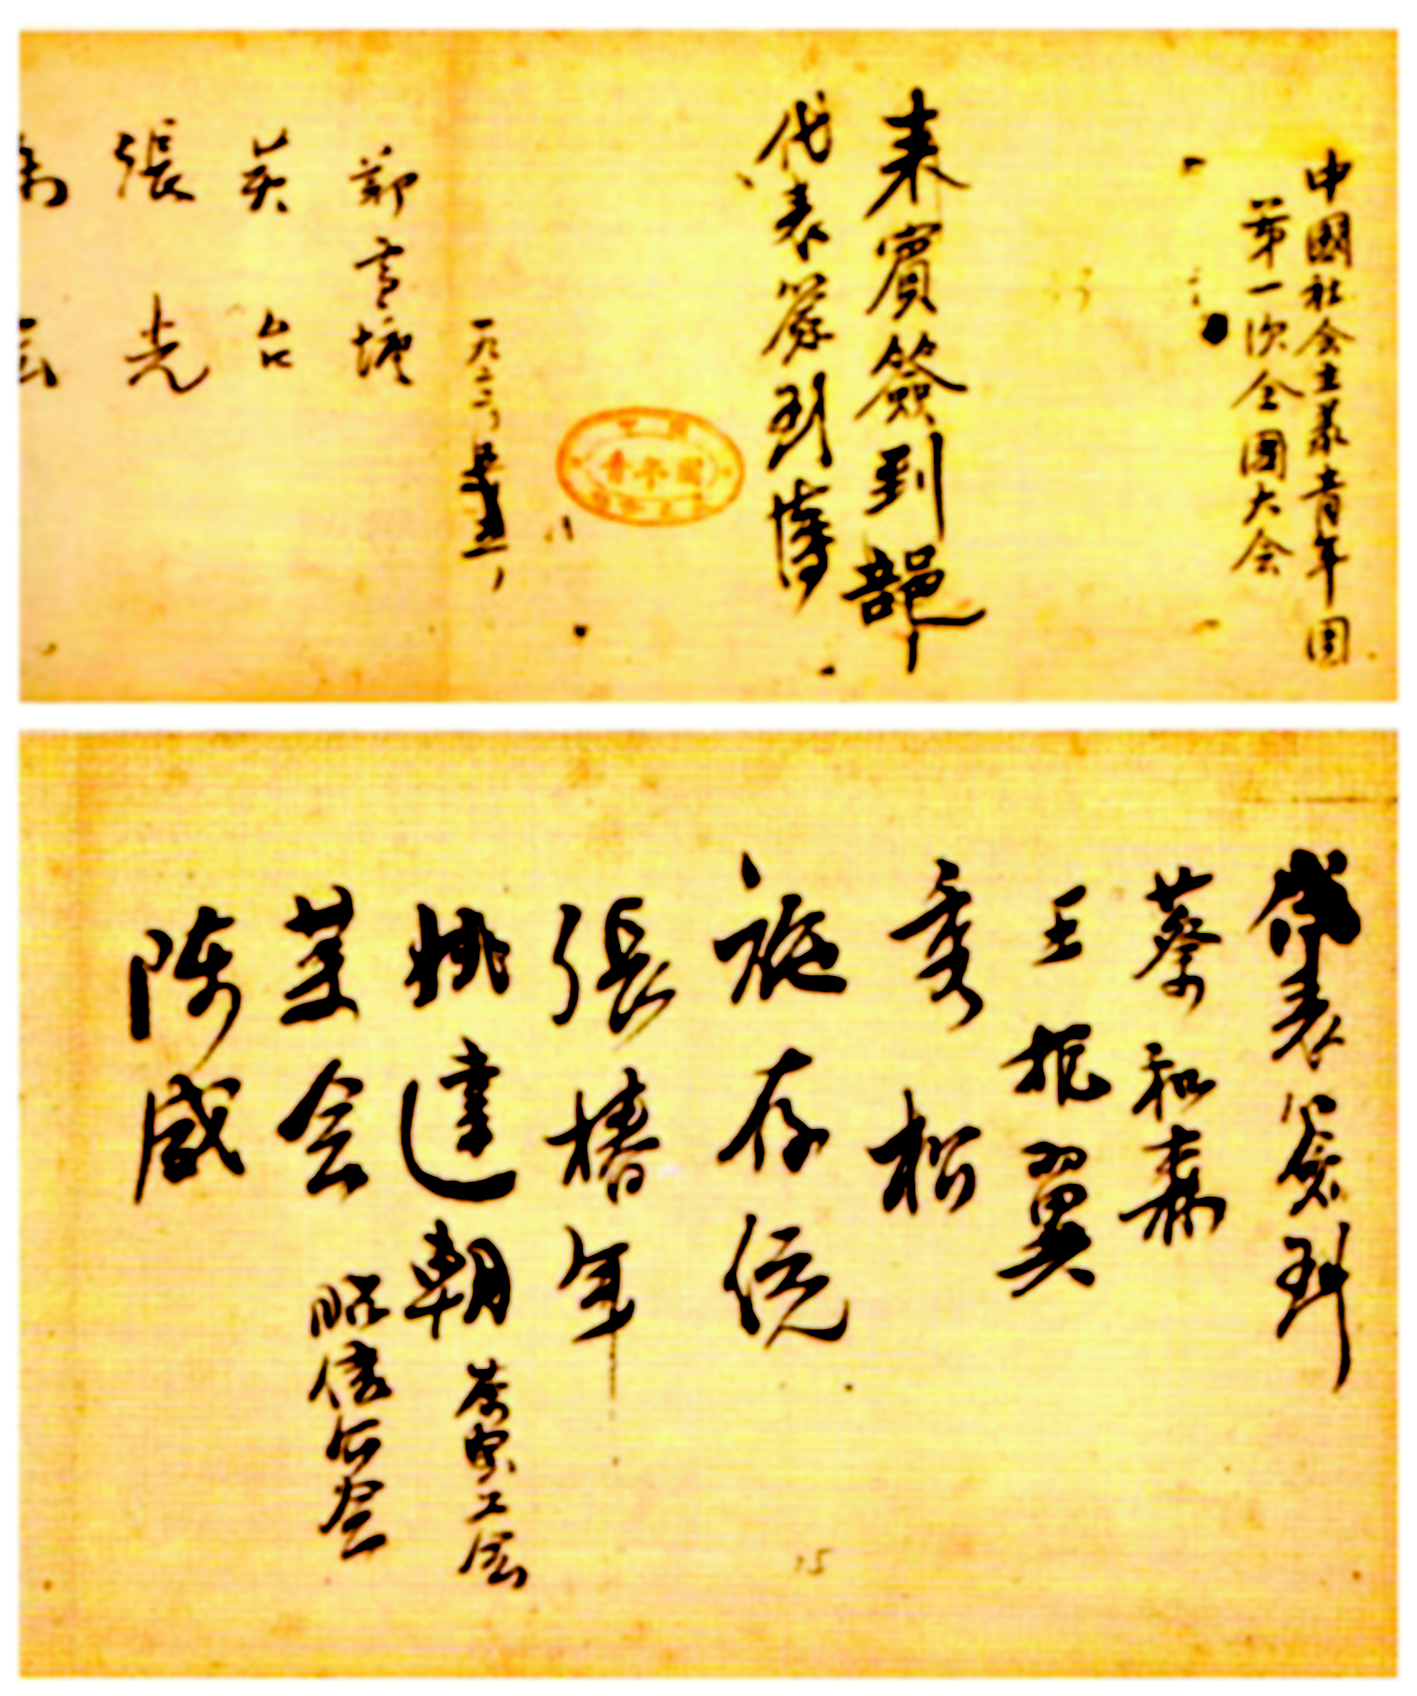 中國社会主義青年团
第一次全國大会
来賓簽到部
代表簽到簿
一九二二，五，五，
張光
代表簽到
蔡和森
王振翼
秀松
施存统
張椿年
姚達朝
茶
工会
莫会
昭信公会
陈感
15